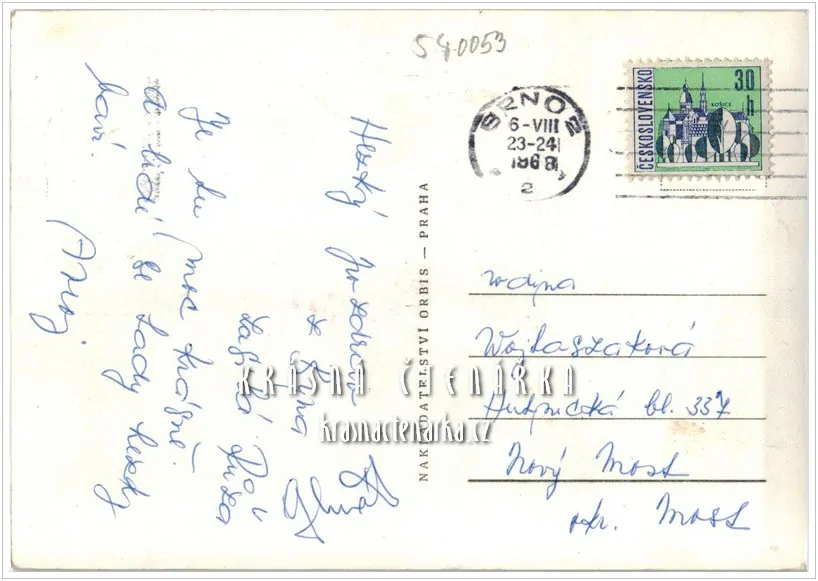 540053
BRNO 2
6-VIII
23-24
1968
2
ČESKOSLOVENSKO
30
h
KOŠICE
Hezký pozdrav
z Brna
Je tu moc krásně.
a lidi se tady hezky
baví.
Ahoj
NAKLADATELSTVÍ ORBIS — PRAHA
rodina
Wojtaszaková
Hutnická bl. 337
Nový Most
okr. Most
KRÁSNÁ ČTENÁRKA
krasnactenarka.cz